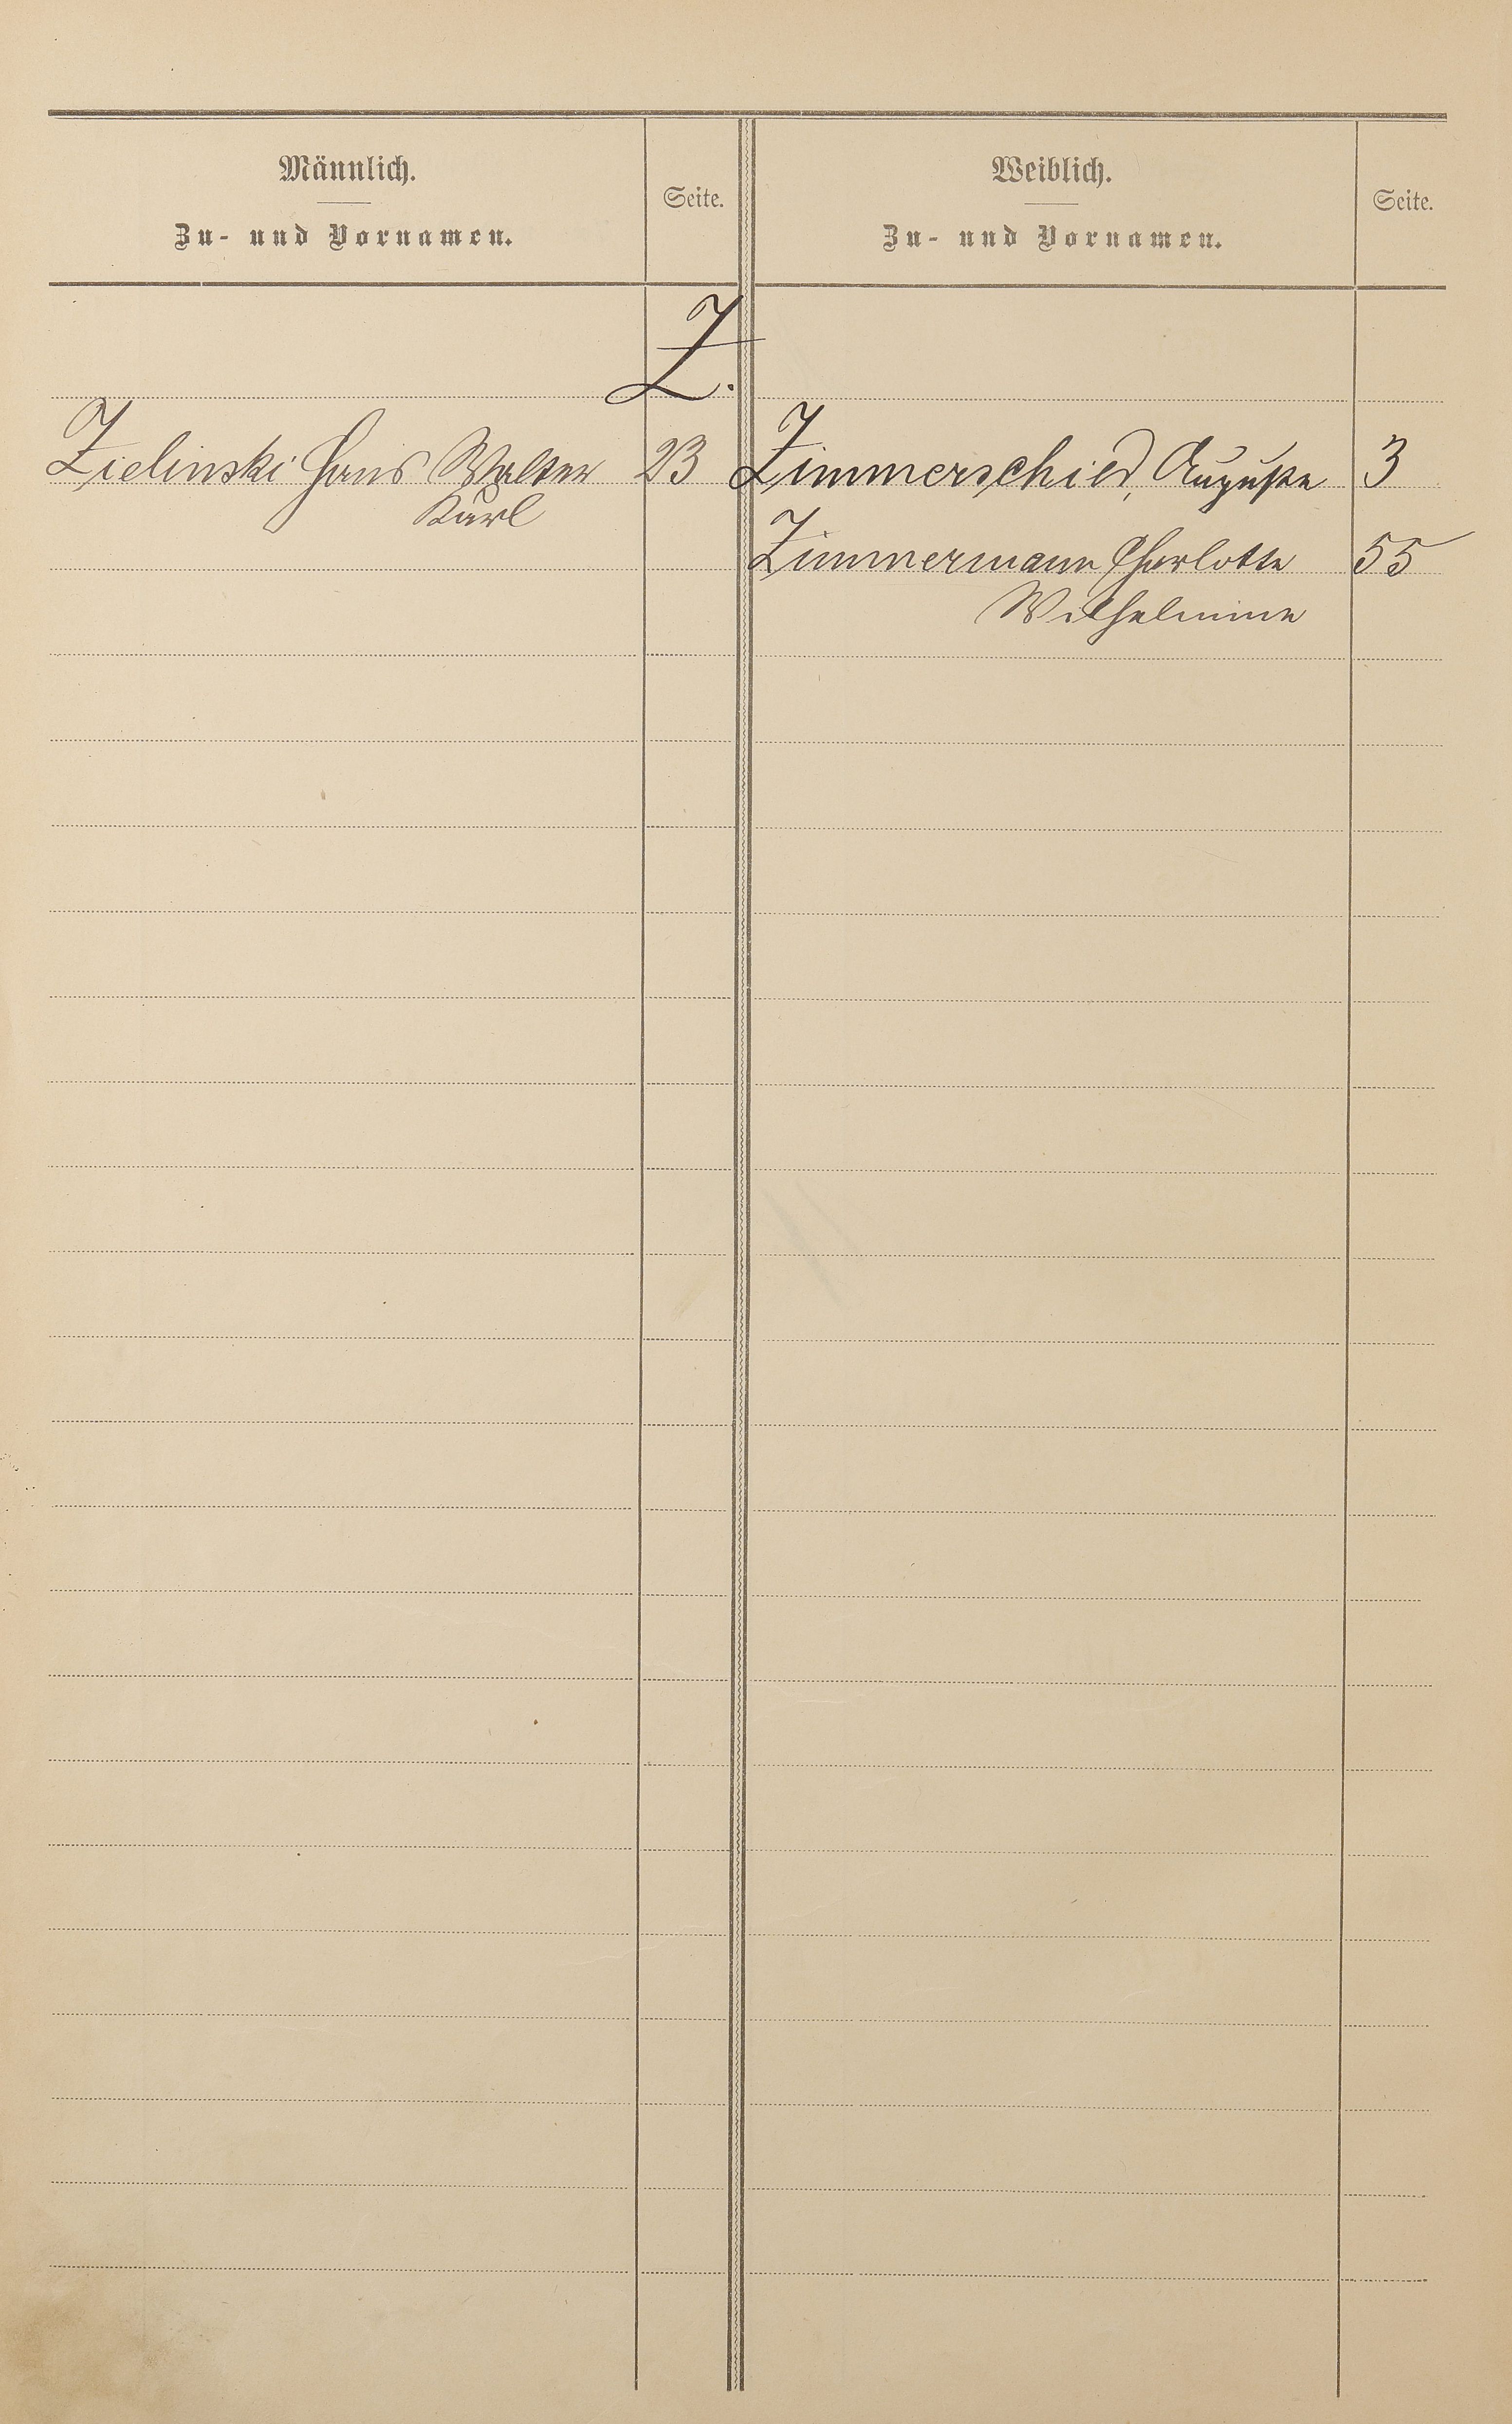 Männlich.
Zu- und Vornamen.
Seite.
Weiblich.
Zu- und Vornamen.
Seite.
Z.
Zielinski Hans Walter 23
Karl
Zimmerschied, Auguste 3
Zimmermann Charlotte 55
Wilhelmine